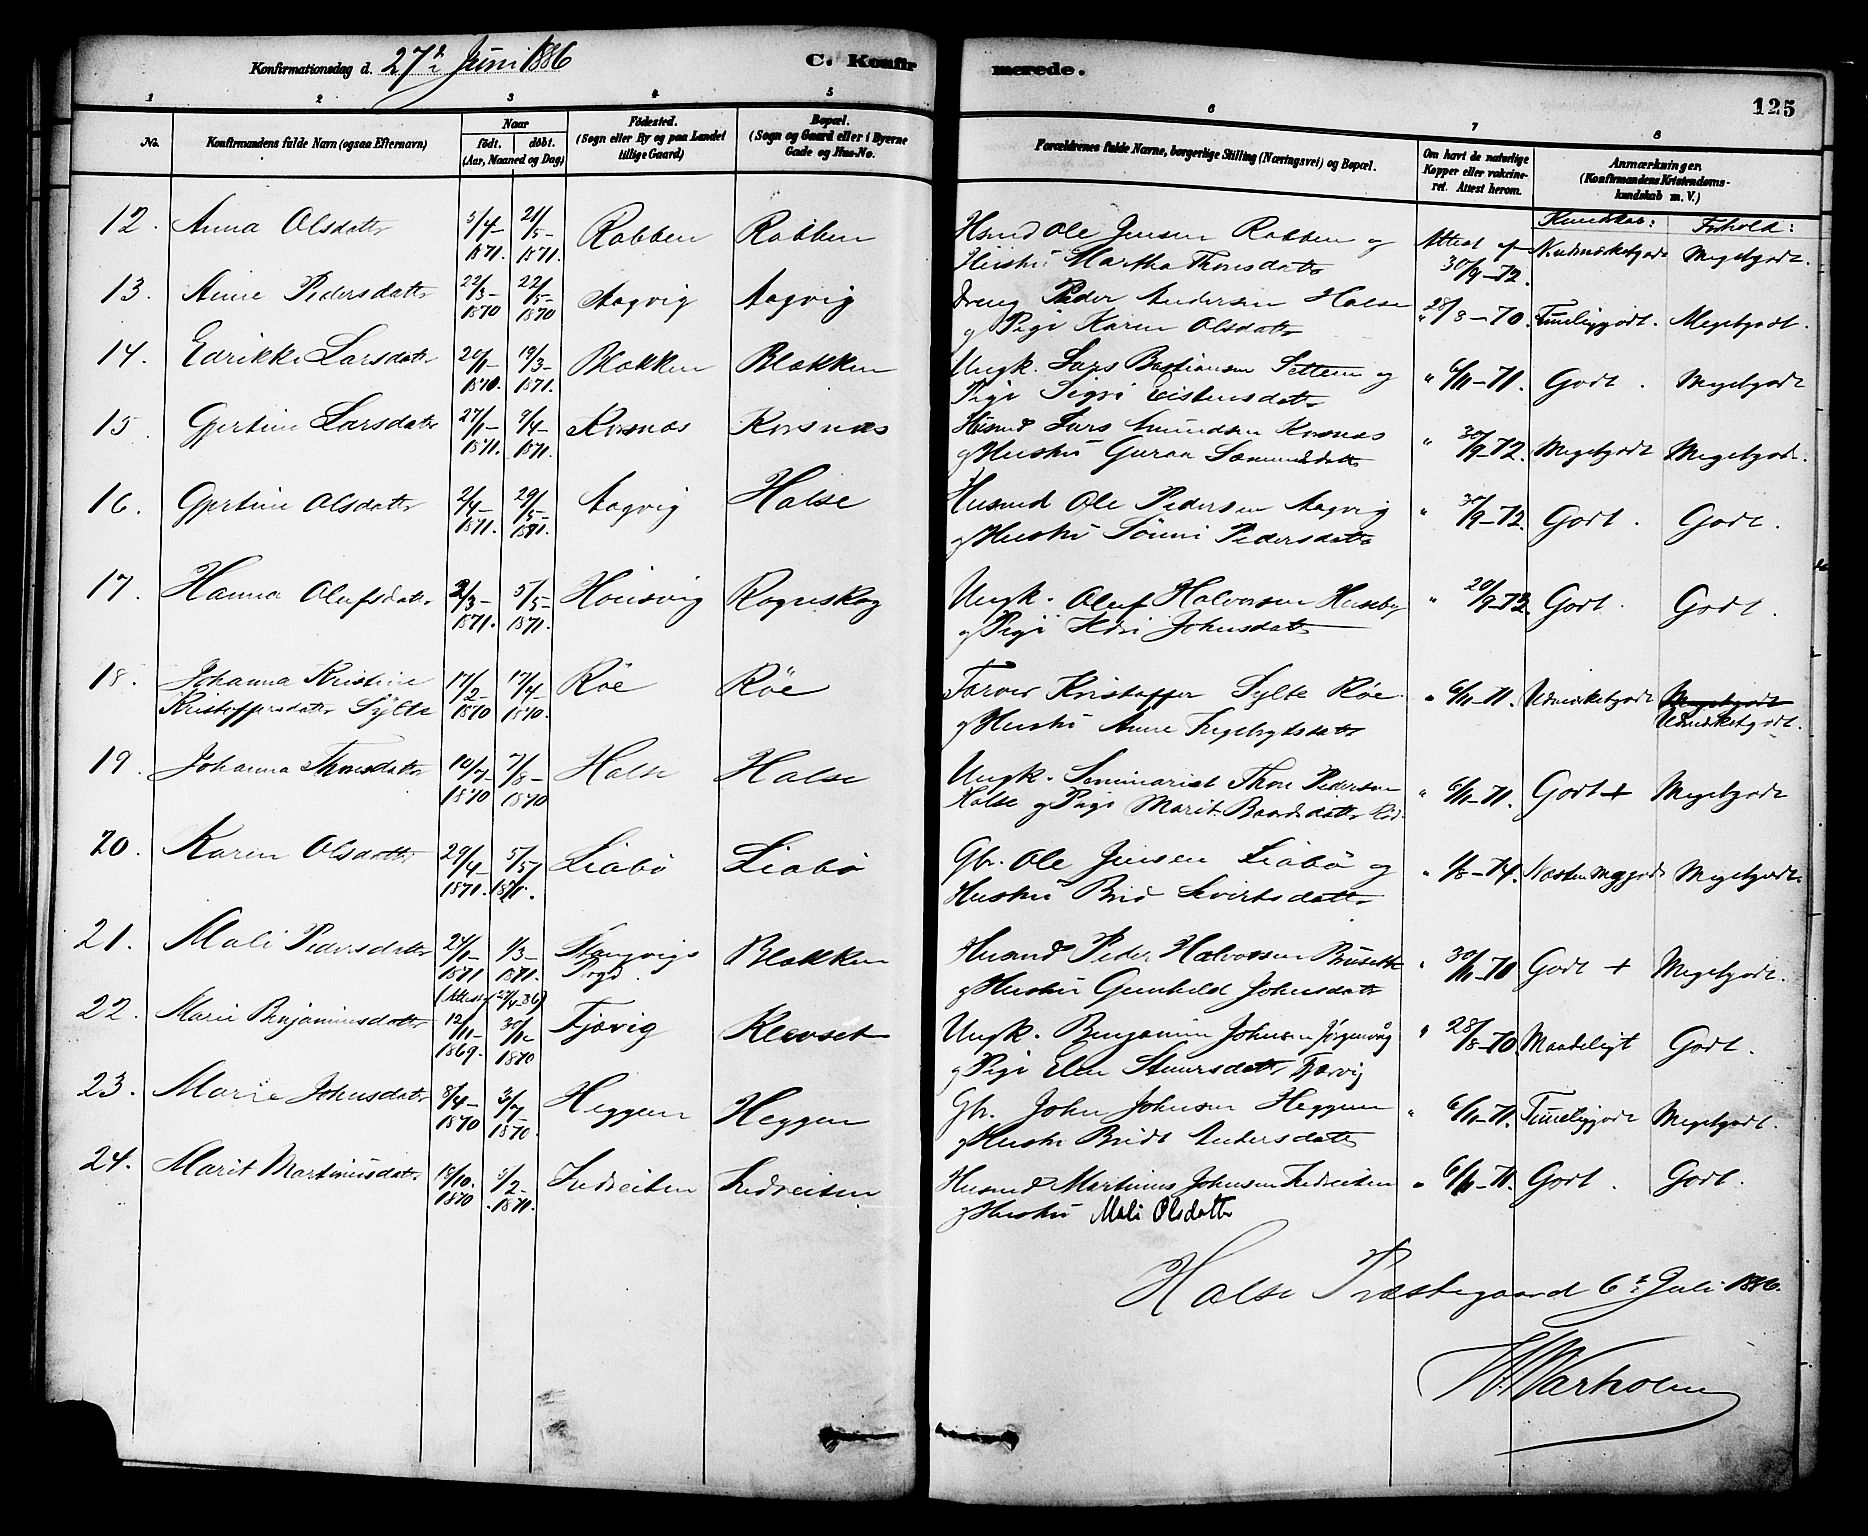 Konfirmationsdag d. 27de Juni 1886
C. Konfirmerede.
125
1 2 3 4 5 6 7 8
No. Konfirmandens fulde Navn (ogsaa Efternavn) Naar født. døbt. (Aar, Maaned og Dag) Fødested. (Sogn eller By og paa Landet tillige Gaard) Bopæl. (Sogn og Gaard eller i Byerne Gade og Hus-No. Forældrenes fulde Navne, borgerlige Stilling (Næringsvei) og Bopæl. Om havt de naturlige Kopper eller vakcineret. Attest herom. Anmærkninger, (Konfirmandens Kristendomskundskab m. V.)
Kundskab: Forhold:
12. Anna Olsdatter 5/4-1871. 21/5-1871. Rabben Rabben Husmd Ole Jensen Rabben og
Huskú Martha Thoresdatter Attest af 30/9-72. Udmærketgodt Megetgodt.
13. Anne Pedersdatter 22/3-1870 22/5-1870 Aagvig Aagvig Dreng Peder Andersen Halse
og Pige Karen Olsdatter " 28/8-70. Temeliggodt. Megetgodt.
14. Edrikke Larsdatter 20/11-1870. 19/3-1871. Blekken Blekken Ungk. Lars Bastiansen Settem og
Pige Sigri Eistensdatter " 6/11-71. Godt. Megetgodt
15. Gjertine Larsdatter 27/1-1871. 9/4-1871. Korsnæs Korsnæs Husmd Lars Amundsen Korsnæs
og Huskú Guraa Sæmundsdatter " 30/9-72. Megetgodt Megetgodt.
16. Gjertine Olsdatter 2/4-1871. 29/5-1871. Aagvig Halse Husmd Ole Pedersen Aagvig
og Huskú Sønni Pedersdatter " 30/9-72. Godt. Godt.
17. Hanna Olufsdatter 2/3-1871. 5/5-1871. Hønsvig Rognskog Ungk. Oluf Halvorsen Huseby
og Pige Johnsdatter " 20/9-73. Godt. Godt.
18. Johanna Kristine
Kristoffersdatter Sylte 17/2-1870 17/4-1870. Røe Røe Farver Kristoffer Sylte Røe.
og Huskú Anne Ingebrigtsdatter " 6/11-71. Udmærketgodt Megetgodt
Udmærketgodt.
19. Johanna Thoresdatter 10/7-1870 7/8-1870 Halse Halse Ungk. Seminarist Thore Pedersen
Halse og Pige Marit Baardsdatter Rød. " 6/11-71. Godt + Megetgodt
20. Karen Olsdatter 29/4-1871. 5/5 1871. Liabø Liabø Gbr. Ole Jensen Liabø og
Huskú Brid Sivertsdatter " 1/8-74. Næsten Meg.godt Megetgodt.
21. Mali Pedersdatter 24/1-1871 1/3-1871. Stangvigs
Prgd. Blekken Husmd Peder Halvorsen Brusett
og Huskú Gunhild Johnsdatter " 30/11-70 Godt + Megetgodt.
(Attest 27/4-86)
22. Marie Benjaminsdatter 12/11-1869. 30/1-1870 Fjærvig Kleevset Ungk. Benjamin Johnsen Jørgenvåg
og Pige Elen Sturesdatter Fjærvig " 28/8-70. Maadeligt Godt.
23. Marie Johnsdatter 8/4-1870 3/7-1870. Heggem Heggem Gbr. John Johnsen Heggem
og Huskú Bridt Andersdatter " 6/11-71. Temeliggodt Megetgodt.
24. Marit Martinusdatter 18/10-1870 5/2-1871. Indreiten Indreiten Husmd Martinus Johnsen Indreiten
og Huskú Mali Olsdatter " 6/11-71. Godt. Godt.
Halse Præstegaard 6te Juli 1886.
W. Warholm